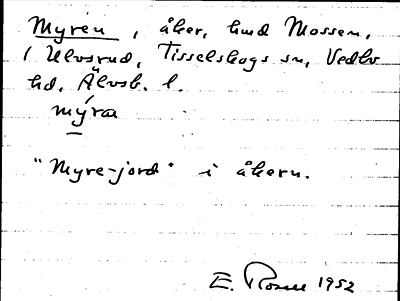 Myren, åker, hmd Mossen,
1 Ulvsrud, Tisselskogs sn, Vedbo
hd, Älvsb. l.
mýra
"Myre-jord" i åkern.
E. Rosell 1952